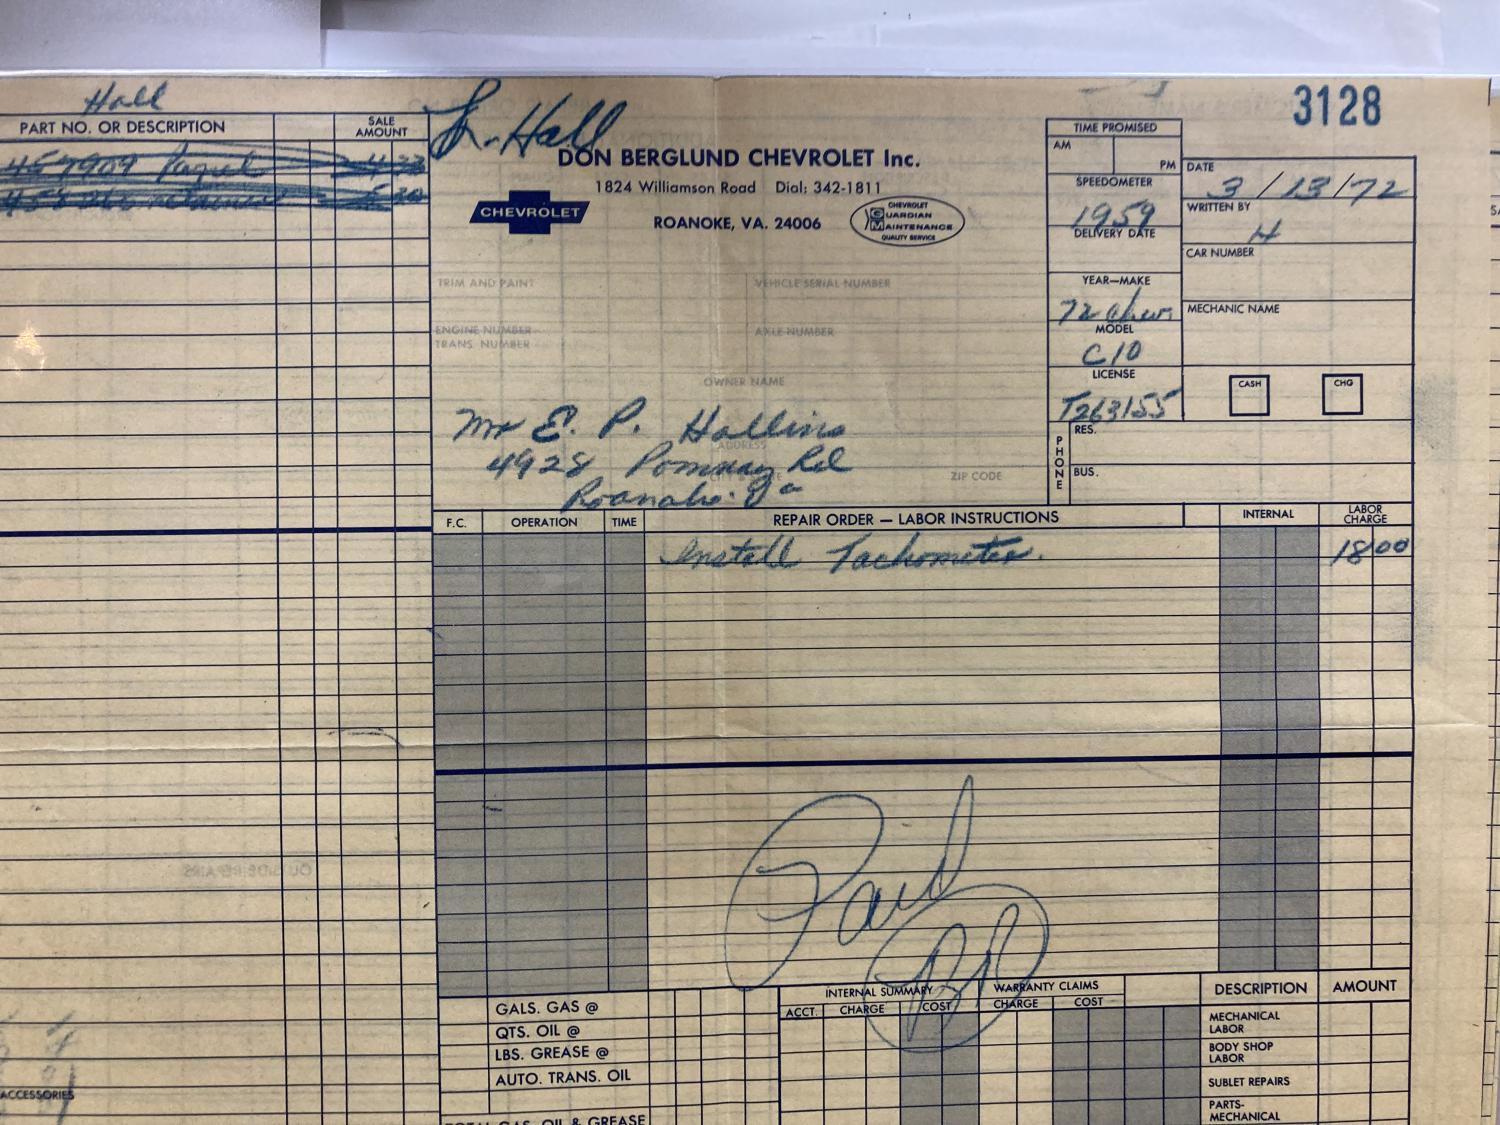 Hall
PART NO. OR DESCRIPTION
SALE AMOUNT
4.23
5.20
Hall
3128
DON BERGLUND CHEVROLET Inc.
1824 Williamson Road Dial: 342-1811
CHEVROLET
ROANOKE, VA. 24006
CHEVROLET
GUARDIAN
MAINTENANCE
QUALITY SERVICE
TIME PROMISED
AM
PM
SPEEDOMETER
1959
DELIVERY DATE
YEAR—MAKE
72 Chev.
MODEL
C10
LICENSE
T263155
DATE
3/13/72
WRITTEN BY
H
CAR NUMBER
MECHANIC NAME
CASH
CHG
PHONE
RES.
BUS.
TRIM AND PAINT
VEHICLE SERIAL NUMBER
ENGINE NUMBER
TRANS. NUMBER
AXLE NUMBER
OWNER NAME
Mr E. P. Hollins
ADDRESS
4928 Rd
ZIP CODE
F.C.
OPERATION
TIME
REPAIR ORDER — LABOR INSTRUCTIONS
INTERNAL
LABOR CHARGE
Install Tachometer.
18 00
OUTSIDE REPAIRS
Paid
GALS. GAS @
QTS. OIL @
LBS. GREASE @
AUTO. TRANS. OIL
TOTAL GAS, OIL & GREASE
INTERNAL SUMMARY
WARRANTY CLAIMS
ACCT.
CHARGE
COST
CHARGE
COST
DESCRIPTION
AMOUNT
MECHANICAL LABOR
BODY SHOP LABOR
SUBLET REPAIRS
PARTS-MECHANICAL
ACCESSORIES